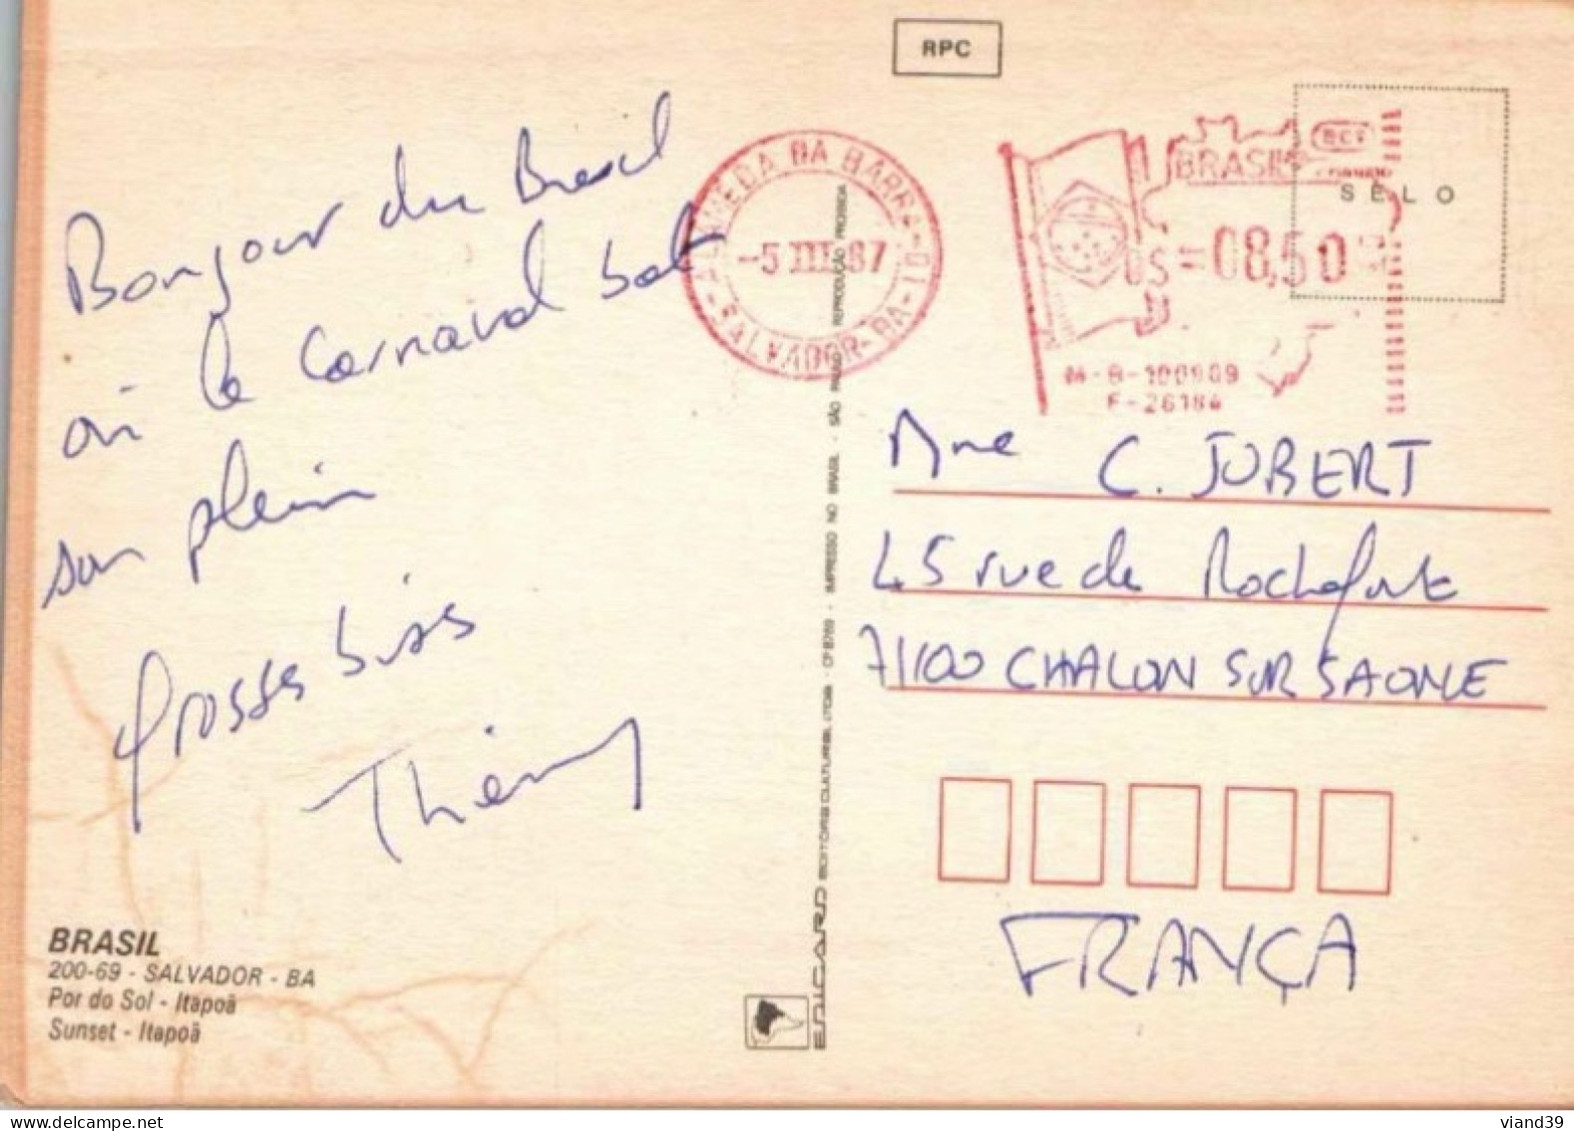 RPC
Bonjour du Bresil
où le Carnaval bat
son plein
Grosses bises
Thierry
BRASIL
200-69 - SALVADOR - BA
Por do Sol - Itapoã
Sunset - Itapoã
ALAMEDA DA BARRA
-5 III 87
SALVADOR-BA
BRASIL
ECT
SELO
08,50
M-B-100909
F-26184
Mme C. JOBERT
45 rue de Rochefort
71100 CHALON SUR SAONE
FRANÇA
EDICARD EDITORA CULTURAL LTDA - CP 8769 - IMPRESSO NO BRASIL - SÃO PAULO REPRODUÇÃO PROIBIDA
DELCAMPE.NET
viand39